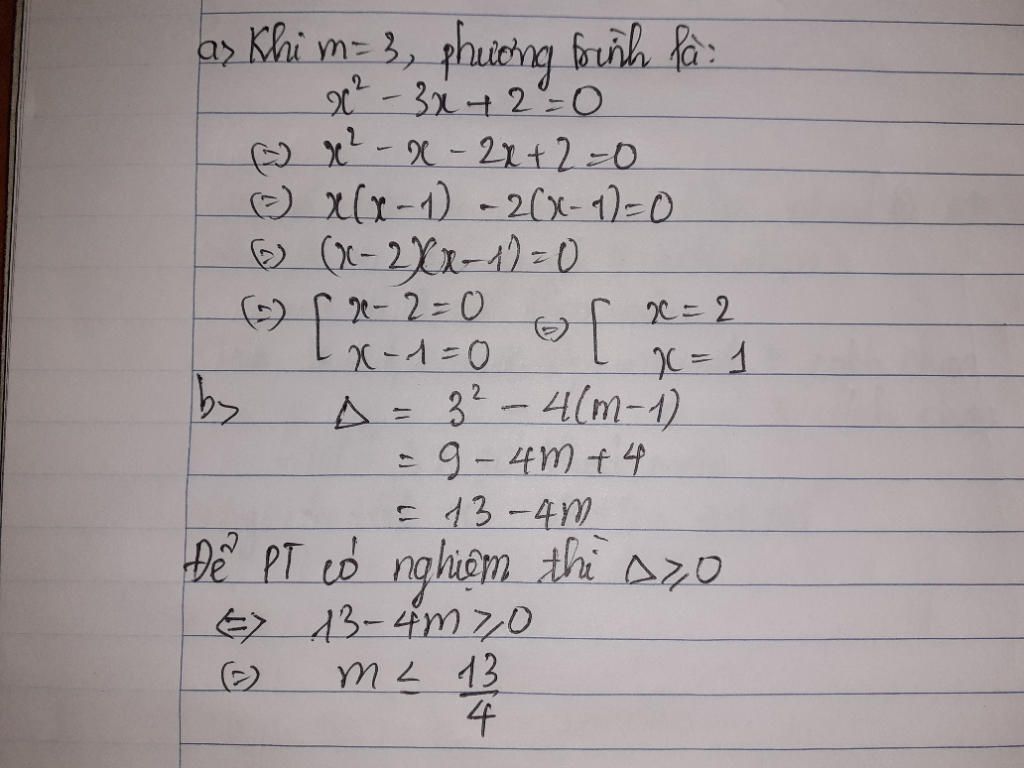 a> Khi m = 3, phương trình là:
x² - 3x + 2 = 0
(=) x² - x - 2x + 2 = 0
(=) x(x - 1) - 2(x - 1) = 0
(=) (x - 2)(x - 1) = 0
(=) [ x - 2 = 0 (=) [ x = 2
x - 1 = 0 x = 1
b> Δ = 3² - 4(m - 1)
= 9 - 4m + 4
= 13 - 4m
Để PT có nghiệm thì Δ ≥ 0
<=> 13 - 4m ≥ 0
(=) m ≤ 13/4